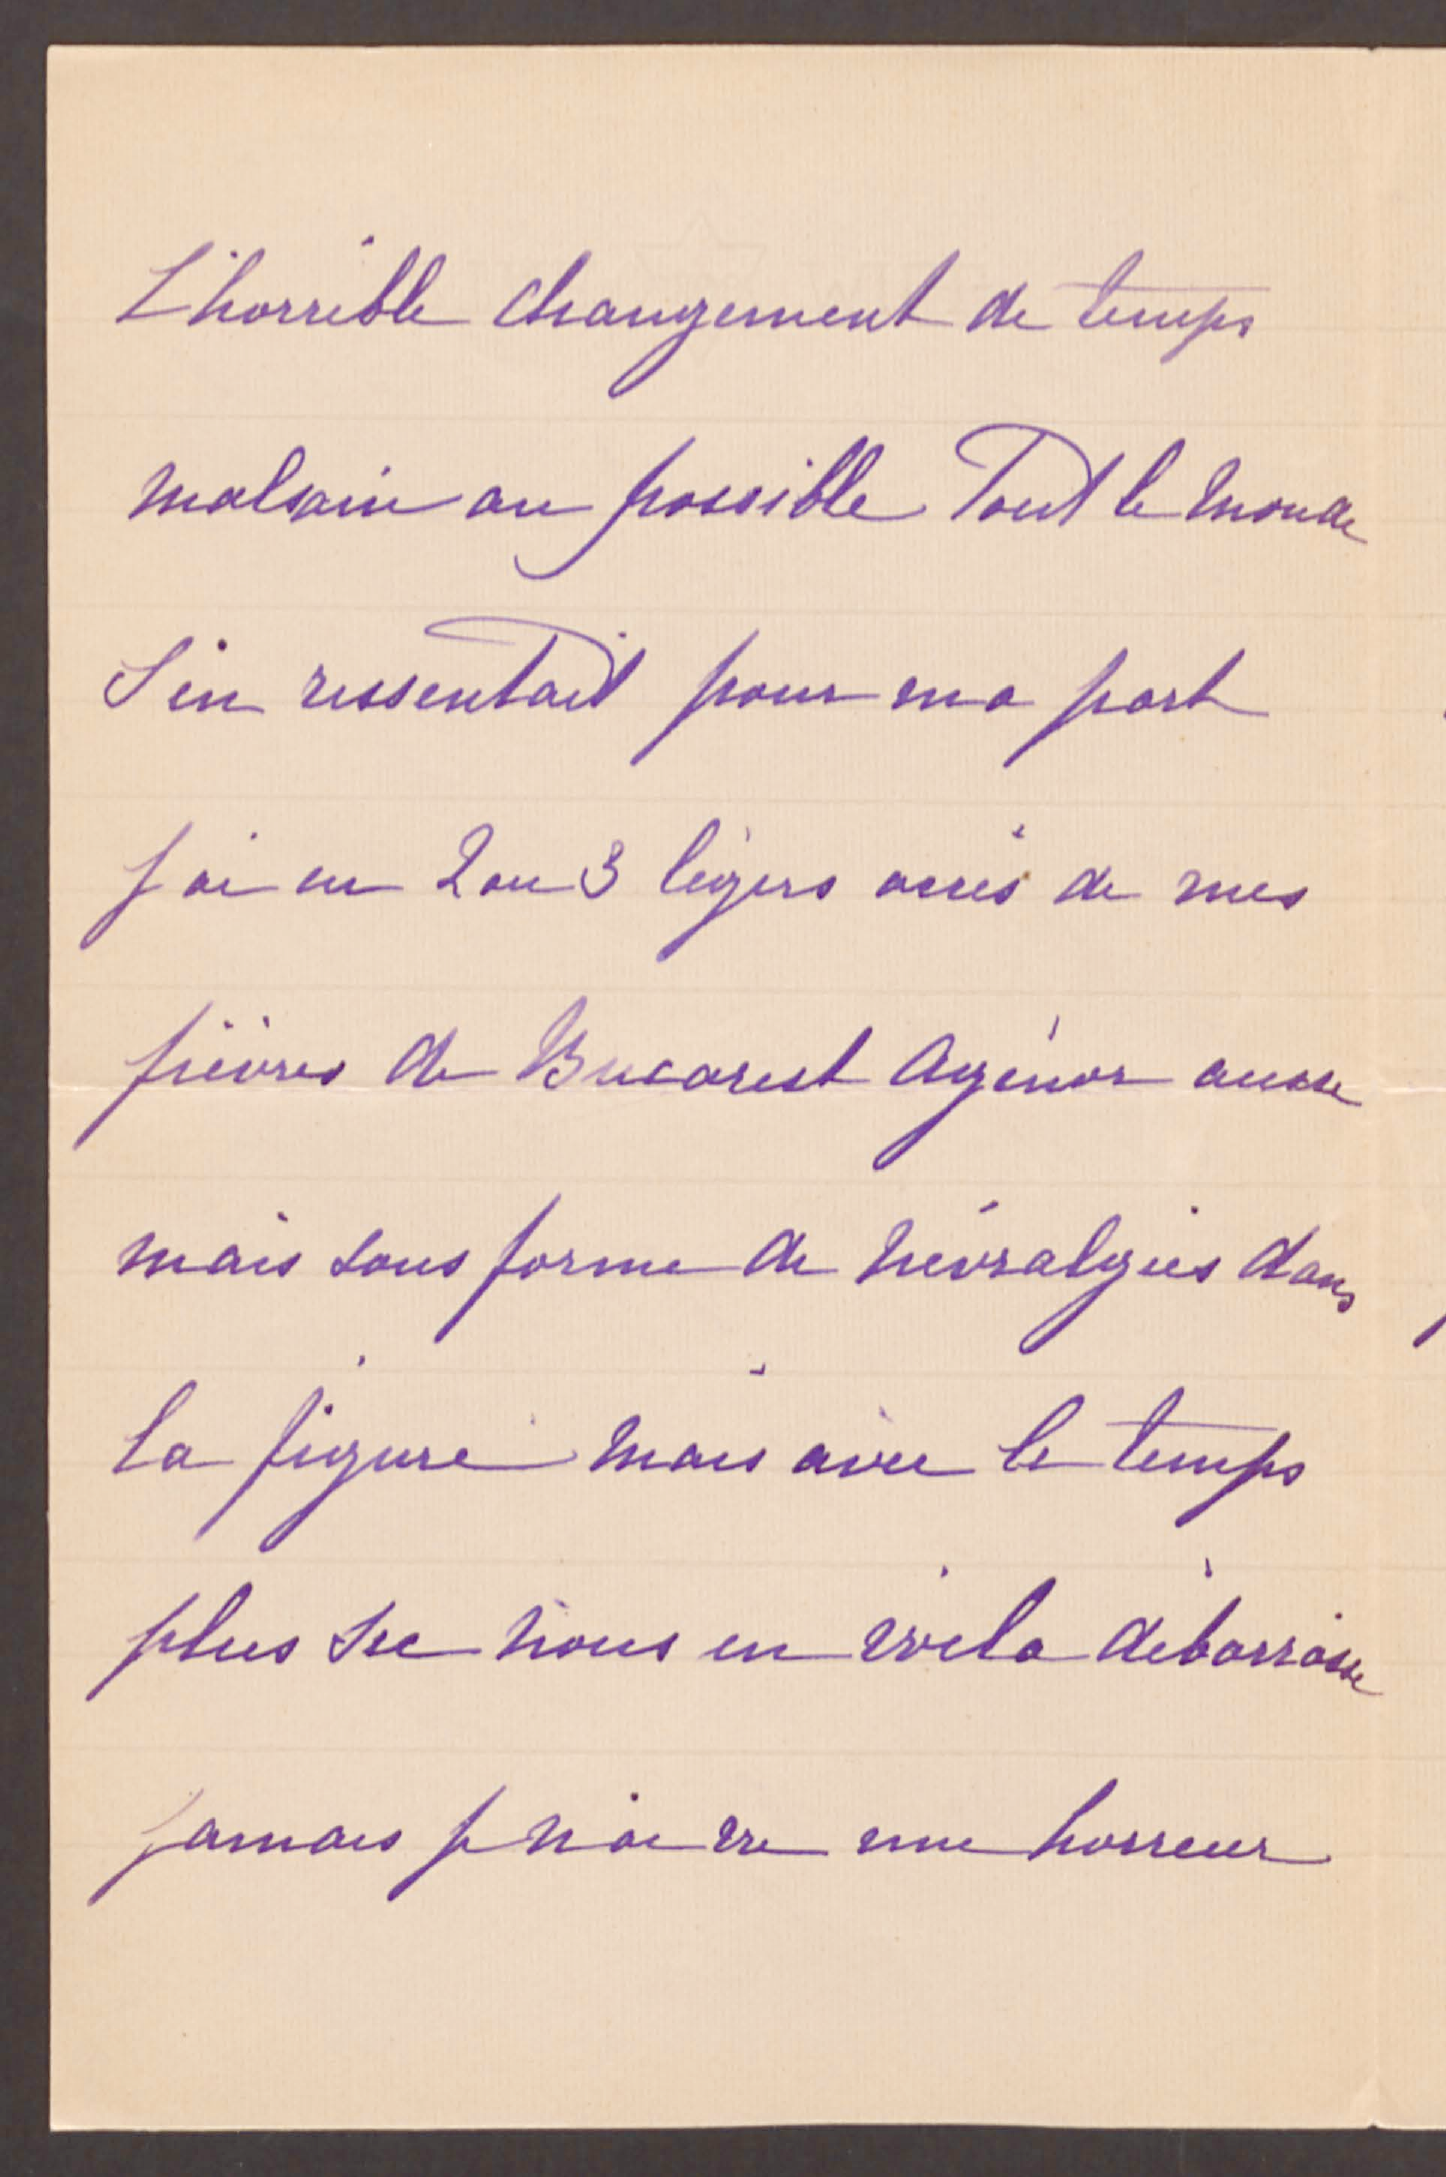 L'horrible changement de temps
malsain au possible Tout le monde
s'en ressentait pour ma part
j'ai eu 2 ou 3 légers accès de mes
fièvres de Bucarest Agénor aussi
mais sous forme de névralgies dans
la figure mais avec le temps
plus sec nous en voila débarrassé
jamais je n'ai vu une horreur